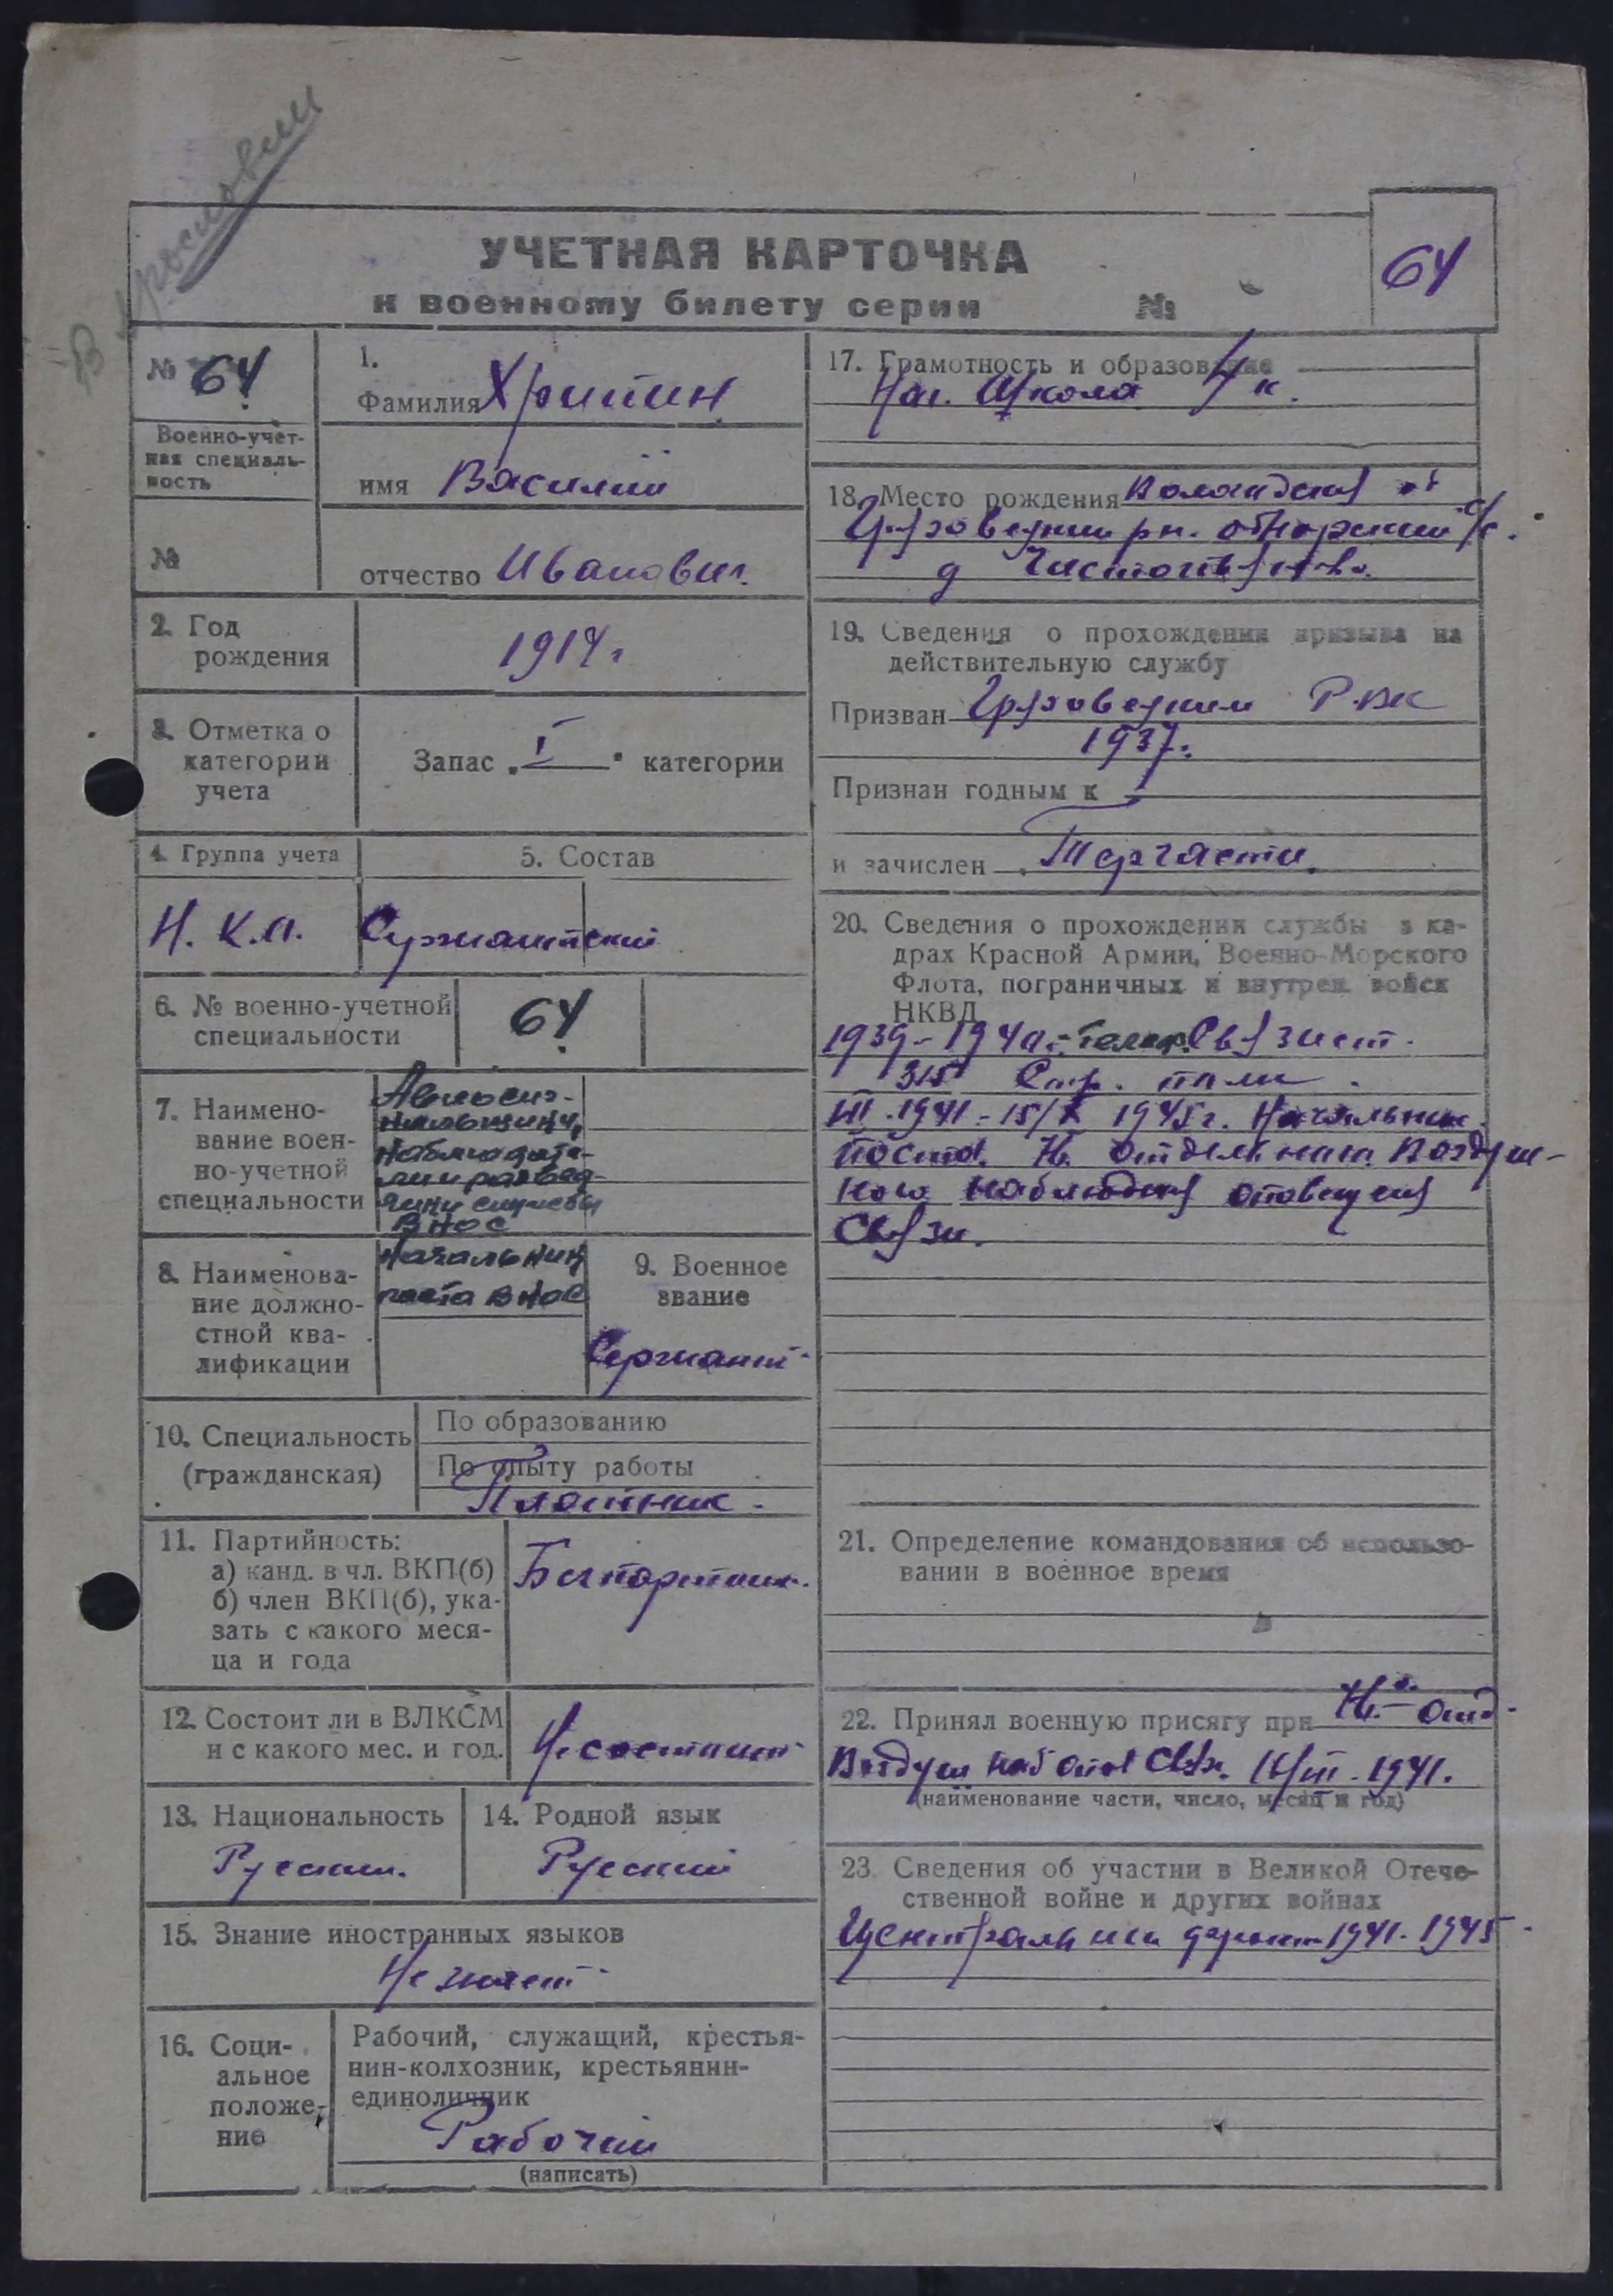 УЧЕТНАЯ КАРТОЧКА
к военному билету серии №
64
№ 64
Военно-учет-
ная специаль-
ность
№
1.
Фамилия Хрипин
имя Василий
отчество Иванович.
2. Год
рождения
1914 г
3. Отметка о
категории
учета
Запас „I" категории
4. Группа учета
5. Состав
Н. К.А.
Сержантский
6. № военно-учетной
специальности
64
7. Наимено-
вание воен-
но-учетной
специальности
службы
ВНОС
8. Наименова-
ние должно-
стной ква-
лификации
Начальник
поста ВНОС
9. Военное
звание
Сержант
10. Специальность
(гражданская)
По образованию
По опыту работы
Плотник.
11. Партийность:
а) канд. в чл. ВКП(б)
б) член ВКП(б), ука-
зать с какого меся-
ца и года
12. Состоит ли в ВЛКСМ
и с какого мес. и год.
Не состоит
13. Национальность
Русский.
14. Родной язык
Русский
15. Знание иностранных языков
Не знает
16. Соци-
альное
положе-
ние
Рабочий, служащий, крестья-
нин-колхозник, крестьянин-
единоличник
Рабочий
(написать)
17. Грамотность и образование
Нач. Школа 4 к.
18. Место рождения
Грязовецкий рн. с/с.
д
19. Сведения о прохождении призыва на
действительную службу
Призван Грязовецким РВК
1937.
Признан годным к
и зачислен Терчасти.
20. Сведения о прохождении службы в ка-
драх Красной Армии, Военно-Морского
Флота, пограничных и внутрен. войск
НКВД
1939-1940. Телеф. Связист.
315 Стр. полк.
III.1941-15/X 1945г. Начальник
поста. Воздуш-
ного наблюдения оповещения
Связи.
21. Определение командования об использо-
вании в военное время
22. Принял военную присягу при отд.
Воздуш наб опов Связи. III.1941.
(наименование части, число, месяц и год)
23. Сведения об участии в Великой Отече-
ственной войне и других войнах
Центральный фронт 1941-1945